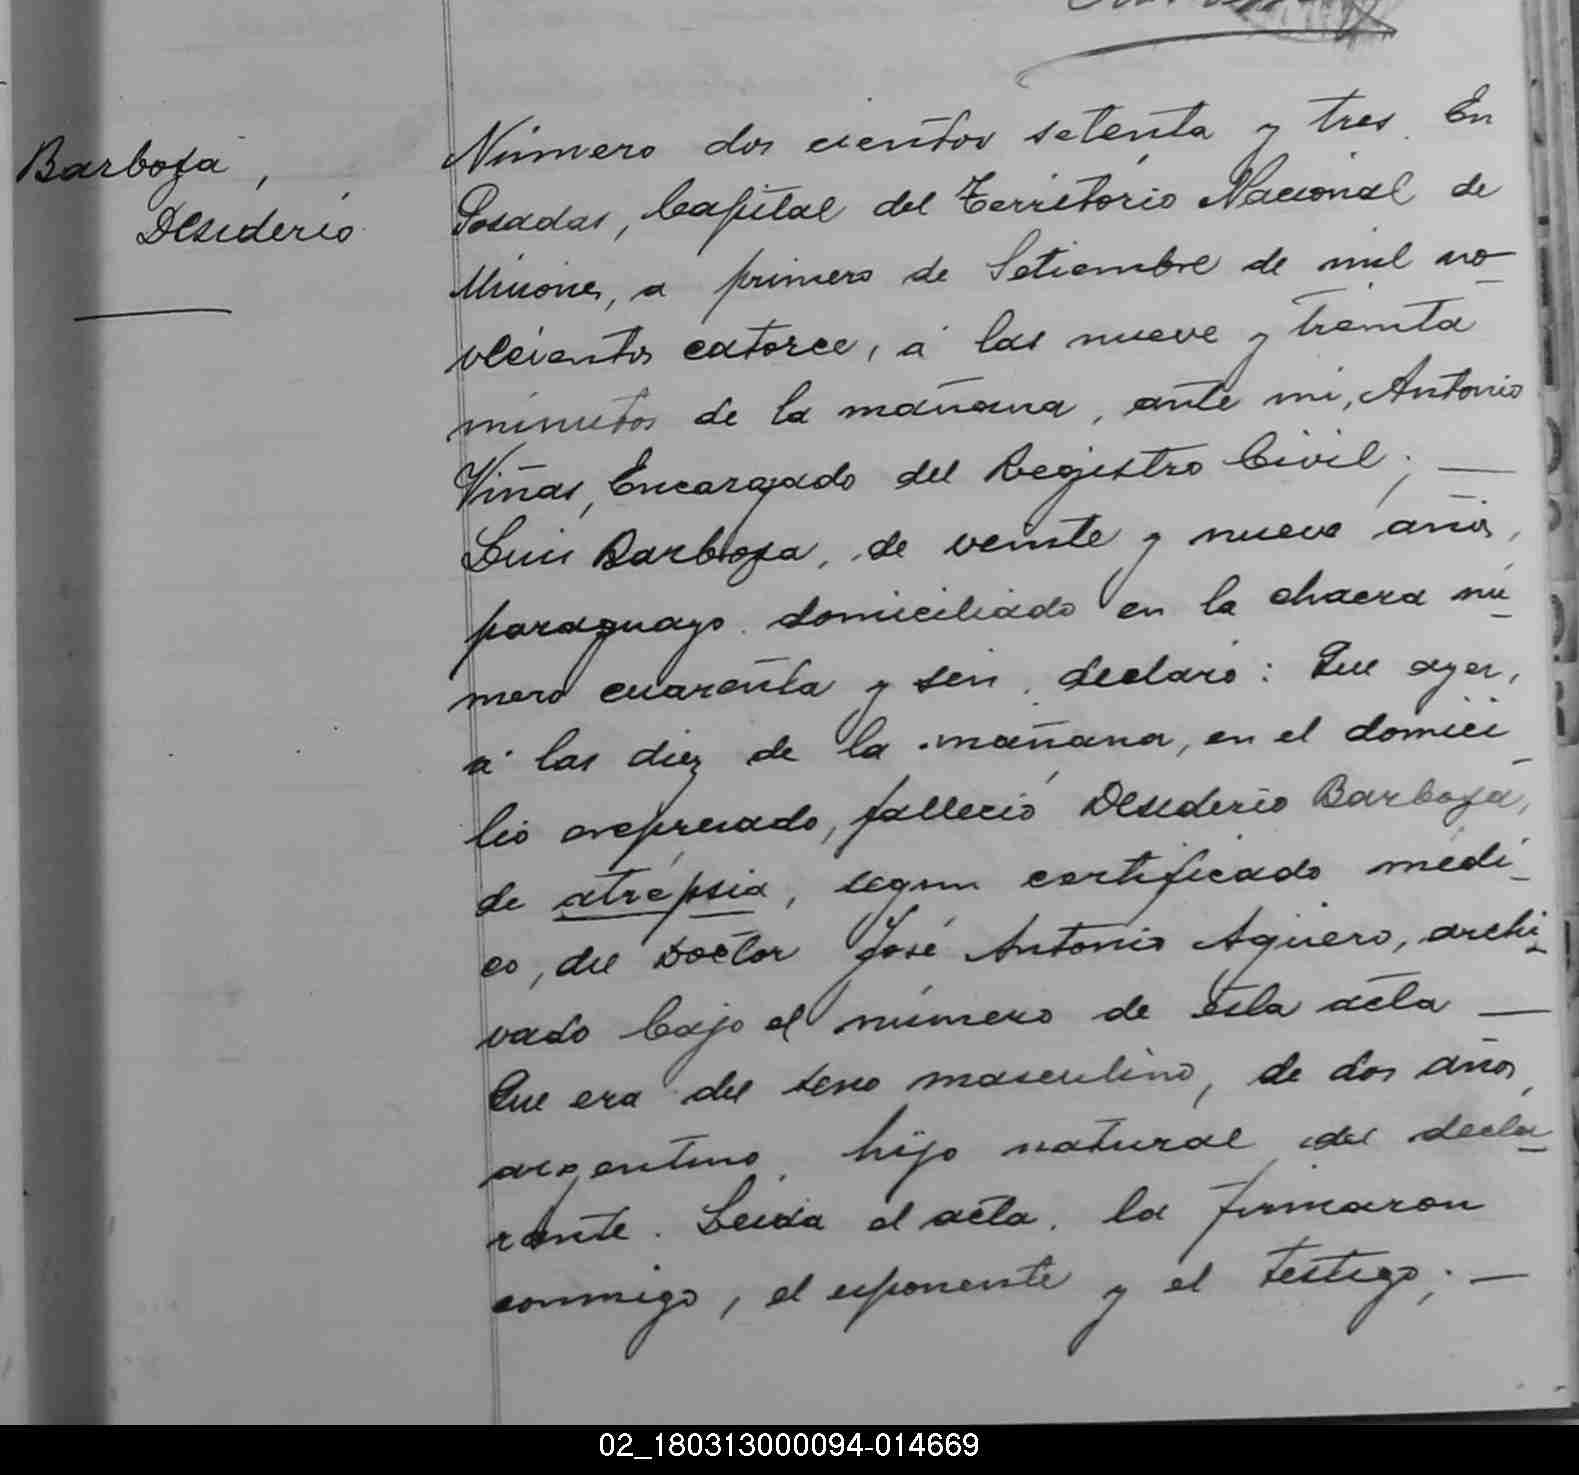 Barbosa,
Desiderio
Número dos cientos setenta y tres. En
Posadas, Capital del Territorio Nacional de
Misiones, a primero de Setiembre de mil no-
vecientos catorce, á las nueve y treinta
minutos de la mañana, ante mi, Antonio
Viñas, Encargado del Registro Civil; —
Luis Barbosa, de veinte y nueve años,
paraguayo. domiciliado en la chacra nú-
mero cuarenta y seis, declaró: Que ayer,
á las diez de la mañana, en el domici-
lio expresado, falleció Desiderio Barbosa,
de atrépsia, segun certificado médi-
co, del Doctor José Antonio Agüero, archi-
vado bajo el número de esta acta —
Que era del sexo masculino, de dos años,
argentino, hijo natural del decla-
rante. Leida el acta, la firmaron
conmigo, el exponente y el testigo; —
02_180313000094-014669